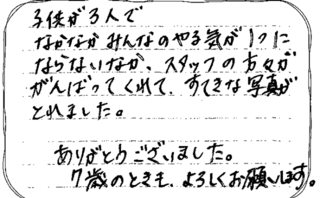 子供が3人で
なかなかみんなのやる気が1つに
ならないなか、スタッフの方々が
がんばってくれて、すてきな写真が
とれました。
ありがとうございました。
7歳のときも、よろしくお願いします。